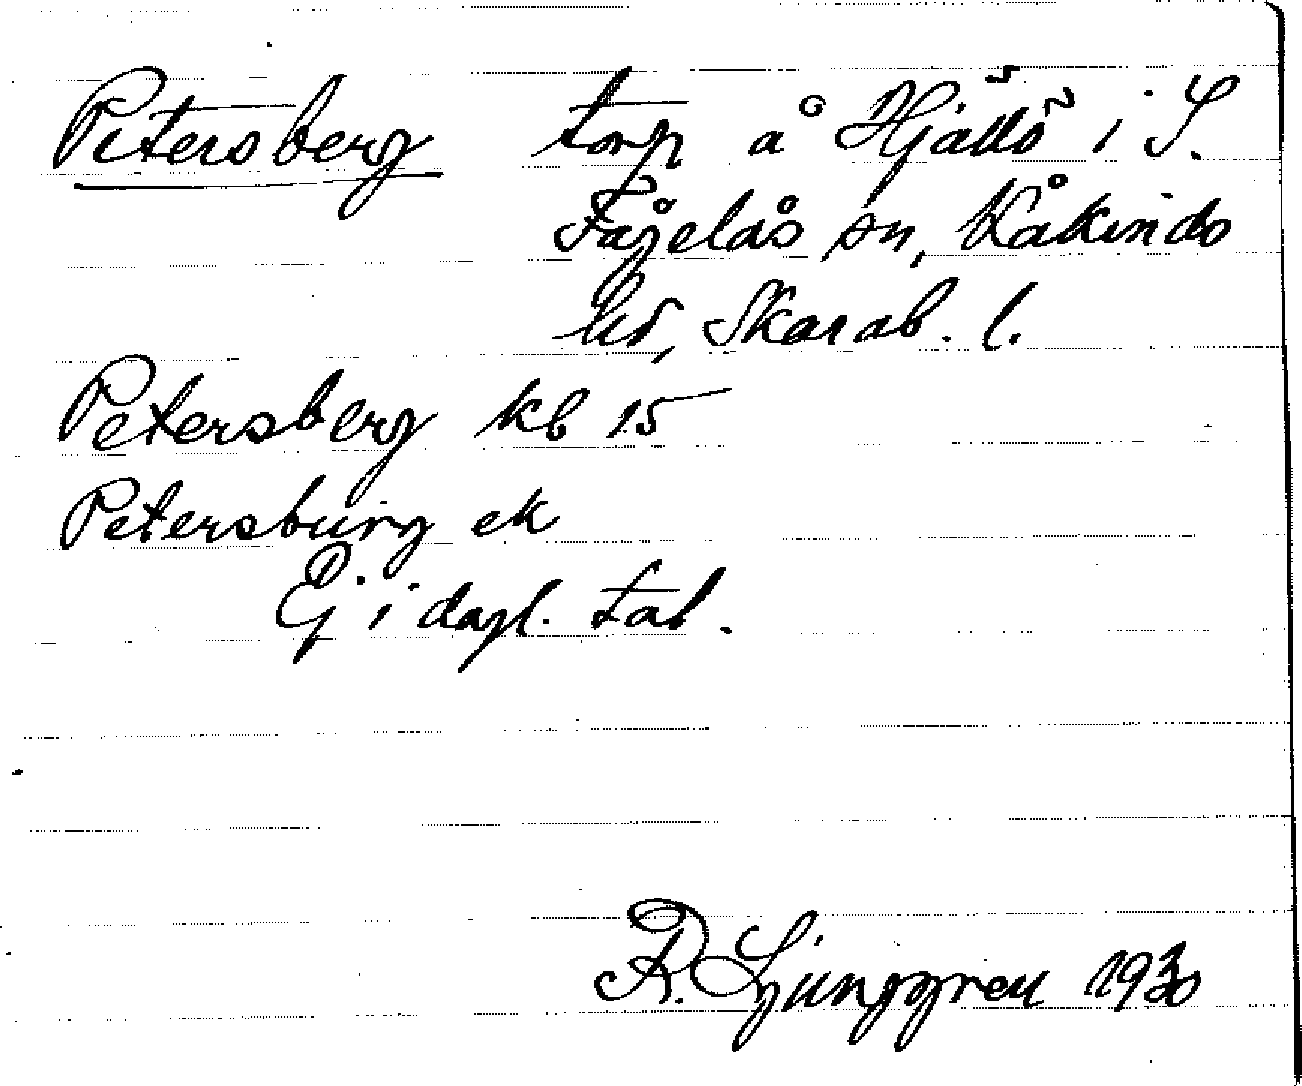 Petersberg torp å Hjällö i S.
Fågelås sn, Kåkinds
hd, Skarab. l.
Petersberg kb 15
Petersburg ek
Ej i dagl. tal.
R. Ljunggren 1930